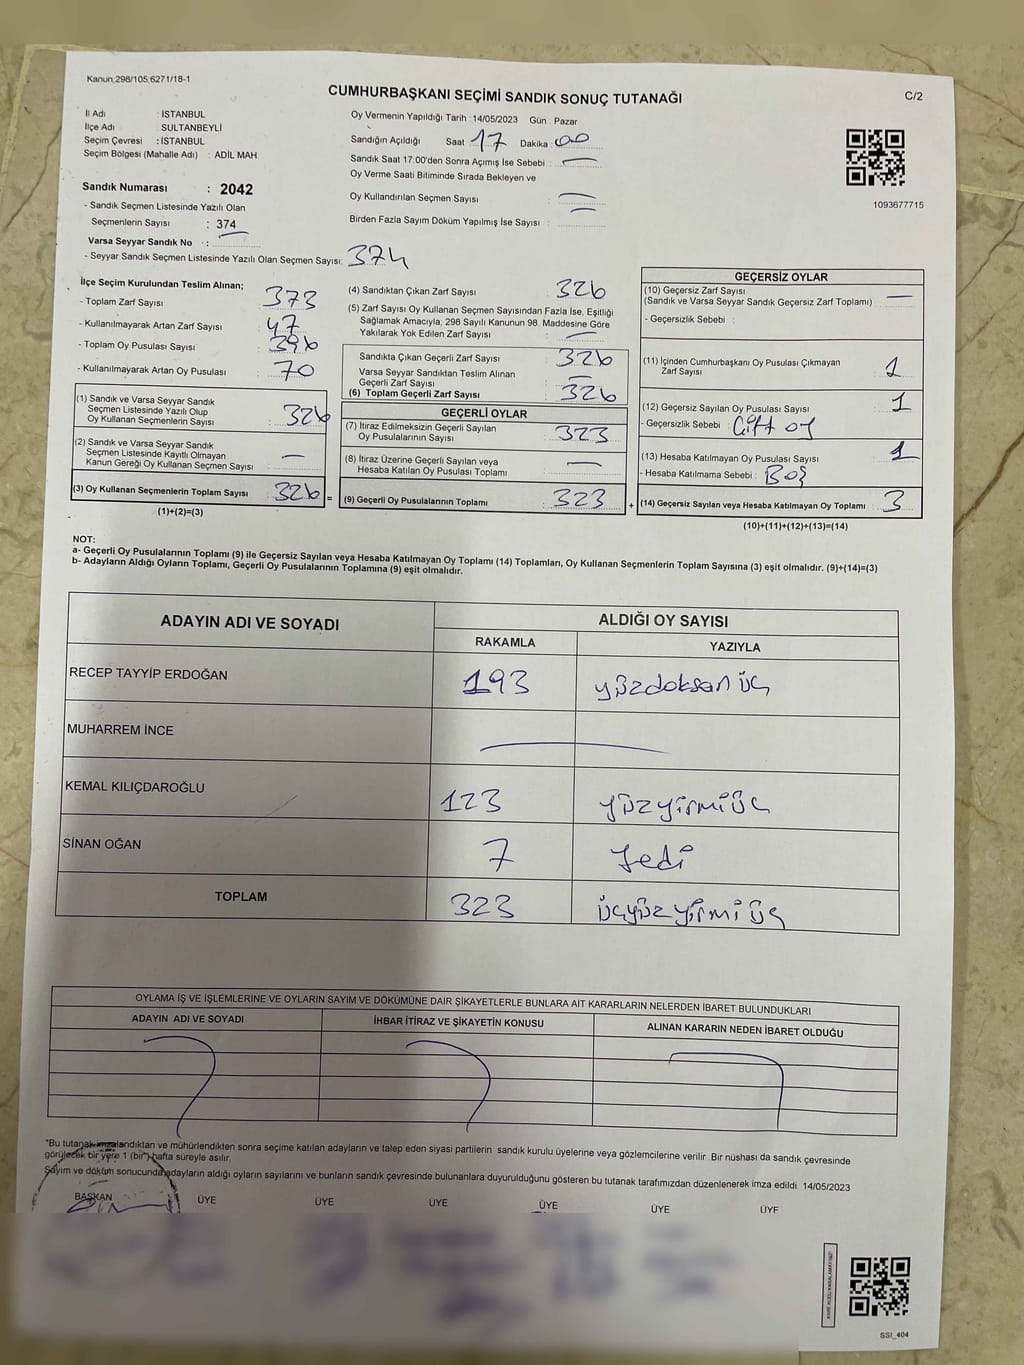 Kanun,298/105,6271/18-1
CUMHURBAŞKANI SEÇİMİ SANDIK SONUÇ TUTANAĞI
C/2
İl Adı : İSTANBUL
İlçe Adı : SULTANBEYLİ
Seçim Çevresi : İSTANBUL
Seçim Bölgesi (Mahalle Adı) : ADİL MAH
Sandık Numarası : 2042
- Sandık Seçmen Listesinde Yazılı Olan
Seçmenlerin Sayısı : 374
Varsa Seyyar Sandık No - :
- Seyyar Sandık Seçmen Listesinde Yazılı Olan Seçmen Sayısı: 374
Oy Vermenin Yapıldığı Tarih : 14/05/2023 Gün : Pazar
Sandığın Açıldığı Saat 17 Dakika : 00
Sandık Saat 17:00'den Sonra Açımış İse Sebebi : —
Oy Verme Saati Bitiminde Sırada Bekleyen ve
Oy Kullandırılan Seçmen Sayısı : —
Birden Fazla Sayım Döküm Yapılmış İse Sayısı : —
1093677715
İlçe Seçim Kurulundan Teslim Alınan;
- Toplam Zarf Sayısı : 373
- Kullanılmayarak Artan Zarf Sayısı : 47
- Toplam Oy Pusulası Sayısı : 396
- Kullanılmayarak Artan Oy Pusulası : 70
(1) Sandık ve Varsa Seyyar Sandık
Seçmen Listesinde Yazılı Olup
Oy Kullanan Seçmenlerin Sayısı : 326
(2) Sandık ve Varsa Seyyar Sandık
Seçmen Listesinde Kayıtlı Olmayan
Kanun Gereği Oy Kullanan Seçmen Sayısı : —
(3) Oy Kullanan Seçmenlerin Toplam Sayısı : 326 =
(1)+(2)=(3)
(4) Sandıktan Çıkan Zarf Sayısı : 326
(5) Zarf Sayısı Oy Kullanan Seçmen Sayısından Fazla İse, Eşitliği
Sağlamak Amacıyla; 298 Sayılı Kanunun 98. Maddesine Göre
Yakılarak Yok Edilen Zarf Sayısı : —
Sandıkta Çıkan Geçerli Zarf Sayısı : 326
Varsa Seyyar Sandıktan Teslim Alınan
Geçerli Zarf Sayısı : —
(6) Toplam Geçerli Zarf Sayısı : 326
GEÇERLİ OYLAR
(7) İtiraz Edilmeksizin Geçerli Sayılan
Oy Pusulalarının Sayısı : 323
(8) İtiraz Üzerine Geçerli Sayılan veya
Hesaba Katılan Oy Pusulası Toplamı : —
(9) Geçerli Oy Pusulalarının Toplamı : 323 +
GEÇERSİZ OYLAR
(10) Geçersiz Zarf Sayısı
(Sandık ve Varsa Seyyar Sandık Geçersiz Zarf Toplamı) : —
- Geçersizlik Sebebi :
(11) İçinden Cumhurbaşkanı Oy Pusulası Çıkmayan
Zarf Sayısı : 1
(12) Geçersiz Sayılan Oy Pusulası Sayısı : 1
- Geçersizlik Sebebi : Çift oy
(13) Hesaba Katılmayan Oy Pusulası Sayısı : 1
- Hesaba Katılmama Sebebi : Boş
(14) Geçersiz Sayılan veya Hesaba Katılmayan Oy Toplamı : 3
(10)+(11)+(12)+(13)=(14)
NOT:
a- Geçerli Oy Pusulalarının Toplamı (9) ile Geçersiz Sayılan veya Hesaba Katılmayan Oy Toplamı (14) Toplamları, Oy Kullanan Seçmenlerin Toplam Sayısına (3) eşit olmalıdır. (9)+(14)=(3)
b- Adayların Aldığı Oyların Toplamı, Geçerli Oy Pusulalarının Toplamına (9) eşit olmalıdır.
ADAYIN ADI VE SOYADI
ALDIĞI OY SAYISI
RAKAMLA YAZIYLA
RECEP TAYYİP ERDOĞAN 193 yüzdoksan üç
MUHARREM İNCE —
KEMAL KILIÇDAROĞLU 123 yüzyirmiüç
SİNAN OĞAN 7 Yedi
TOPLAM 323 üçyüzyirmi üç
OYLAMA İŞ VE İŞLEMLERİNE VE OYLARIN SAYIM VE DÖKÜMÜNE DAİR ŞİKAYETLERLE BUNLARA AİT KARARLARIN NELERDEN İBARET BULUNDUKLARI
ADAYIN ADI VE SOYADI İHBAR İTİRAZ VE ŞİKAYETİN KONUSU ALINAN KARARIN NEDEN İBARET OLDUĞU
"Bu tutanak imzalandıktan ve mühürlendikten sonra seçime katılan adayların ve talep eden siyasi partilerin sandık kurulu üyelerine veya gözlemcilerine verilir. Bir nüshası da sandık çevresinde
görülecek bir yere 1 (bir") hafta süreyle asılır.
Sayım ve döküm sonucunda adayların aldığı oyların sayılarını ve bunların sandık çevresinde bulunanlara duyurulduğunu gösteren bu tutanak tarafımızdan düzenlenerek imza edildi. 14/05/2023
BAŞKAN ÜYE ÜYE ÜYE ÜYE ÜYE ÜYE
SSI_404